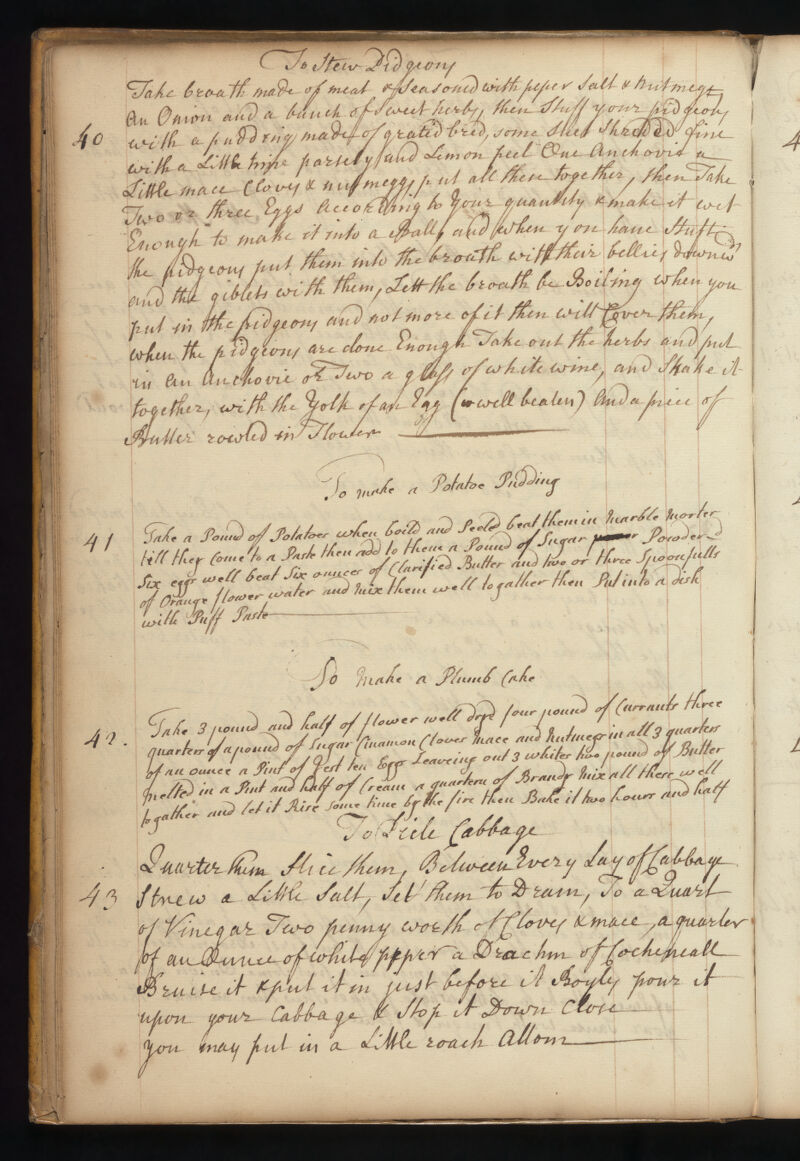 To Stew Pidgeons
Take broath made of meat & seasoned with peper salt & nutmegs
an Onion and a bunch of sweet herbs, then stuff your pidgeons
40 with a pudding made of grated bred, some suet shreded fine
with a Little time parsely and Lemon peel One Anchovie a
Little mace Cloves & nutmeggs, put all these together, then Take
Two or three Eggs According to Your quantity & make it wet
Enough to make it into a Ball, and when you have stuft
the pidgeons put them into the broath with their bellies downwd
and the giblets with them, Lett the broath be Boiling when you
put in the pidgeons and not more of it then will Cover them,
when the pidgeons are done Enough Take out the herbs and put
in an anchovie or Two a glass of white wine, and shake it
together, with the Yolk of an Egg (well beaten) And a piece of
Butter rowled in Flower
To make a Potatoe Pudding
41 Take a Pound of Potatoes when boild and Peeled beat them in Marble Morter
till they Come to a Paste then add to them a Pound of Sugar Powderd
Six eggs well beat Six ounces of Clarified Butter and two or three Spoonfulls
of Orange flower water and mix them well togather then Put into a dish
with Puff Paste
To Make a Plumb Cake
42. Take 3 pound and half of flower well dryd four pound of Currants three
quarters of a pound of Sugar Cinamon Cloves Mace and Nutmegs in all 3 quarters
of an ounce a Pint of Yest ten Eggs Leaveing out 3 whites two pound of Butter
Melted in a Pint and half of Cream a quartern of Brandy Mix all these well
togather and let it Rise some time by the fire then Bake it two hours and half
To Picle Cabbage
Quarter them Slice them, Between Every Lay of Cabbage
43 Strew a Little Salt, Set them to Drain, To a Quart
of Vinegar Two penny worth of Cloves & mace, a quarter
of an Ounce of white pepper a Drachm of Cocheneall
Bruise it & put it in just before it Boyls pour it
upon your Cabbage & Stop it Down Close
You may put in a Little roach Allom